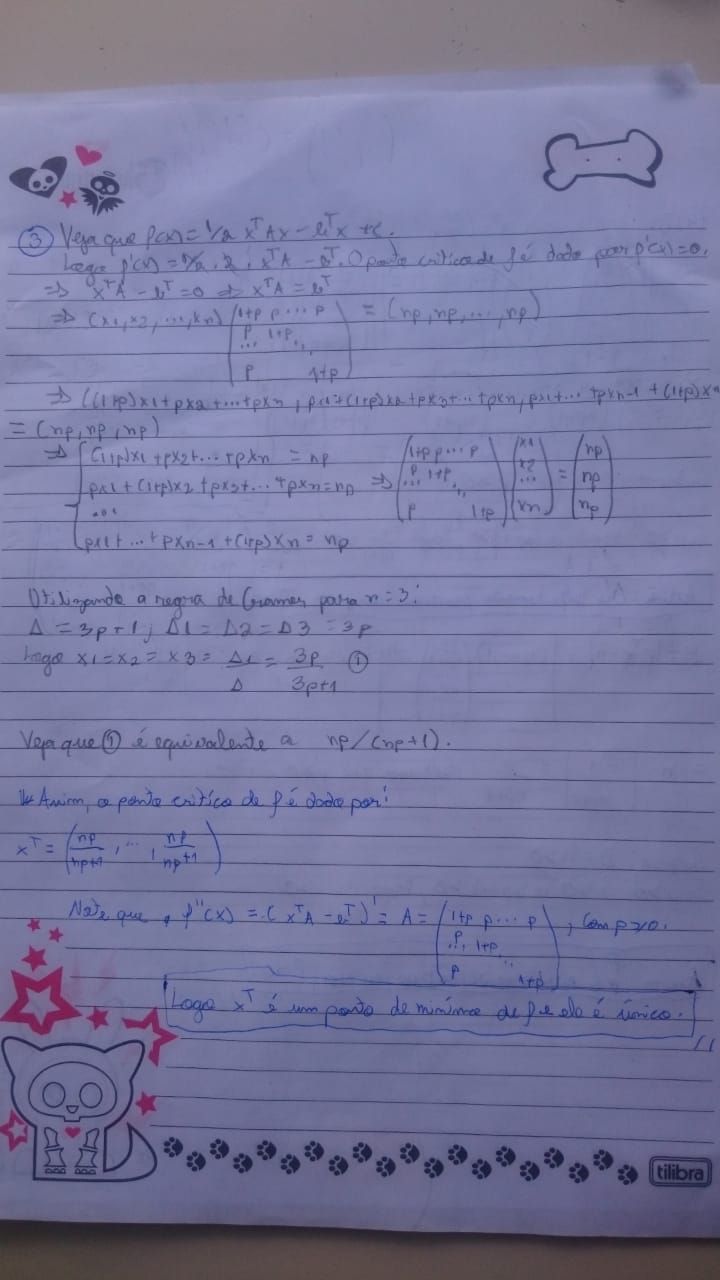 ③ Veja que f(x) = 1/2 xᵀAx - bᵀx + c.
Logo f'(x) = 1/2 . 2 . xᵀA - bᵀ. O ponto crítico de f é dado por f'(x) = 0.
⇒ xᵀA - bᵀ = 0 ⇒ xᵀA = bᵀ
⇒ (x1, x2, ..., xn) (1+p p ... p = (np, np, ..., np)
p
... 1+p ...
p 1+p)
⇒ ((1+p)x1 + px2 + ... + pxn, px1 + (1+p)x2 + px3 + ... + pxn, px1 + ... + pxn-1 + (1+p)xn
= (np, np, np)
⇒ { (1+p)x1 + px2 + ... + pxn = np
px1 + (1+p)x2 + px3 + ... + pxn = np ⇒ (1+p p ... p p ... 1+p ... p 1+p) (x1 x2 ... xn) = (np np np)
...
px1 + ... + pxn-1 + (1+p)xn = np
Utilizando a regra de Cramer para n = 3:
Δ = 3p + 1; Δ1 = Δ2 = Δ3 = 3p
Logo x1 = x2 = x3 = Δ1/Δ = 3p/3p+1 ①
Veja que ① é equivalente a np/(np+1).
Assim, o ponto crítico de f é dado por:
xᵀ = (np/np+1, ..., np/np+1)
Note que, f''(x) = (xᵀA - bᵀ)' = A = (1+p p ... p p ... 1+p ... p 1+p), com p>0.
Logo xᵀ é um ponto de mínimo de f e ele é único.
tilibra